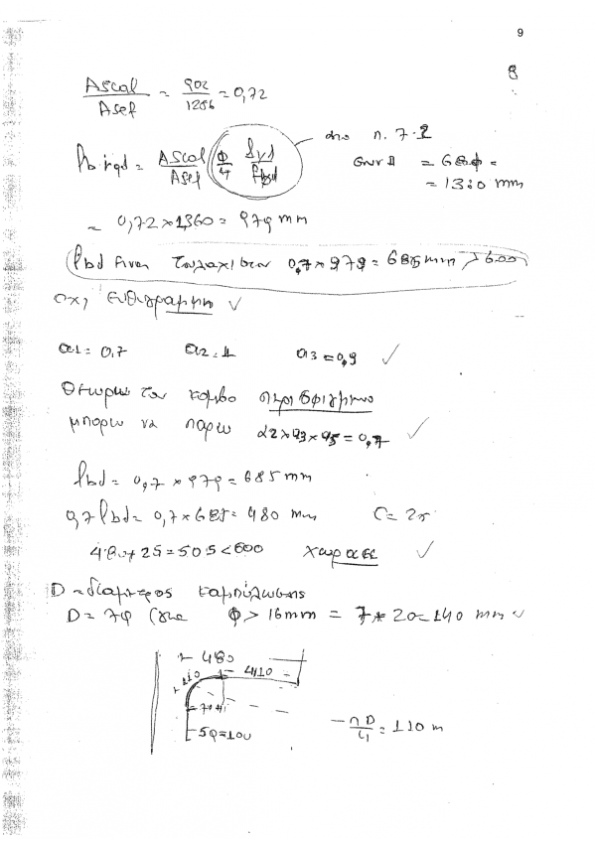 9
8
Ascal/Asef = 902/1256 = 0,72
lb rqd = Ascal/Asef (Φ/4 fyd/fbd) απο π. 7.2
= 68φ =
= 1360 mm
= 0,72 × 1360 = 979 mm
lbd ειναι τουλαχιστον 0,7 × 979 = 685 mm > 600
οχι ευθυγραμμη ✓
α1 = 0,7 α2 = 1 α3 = 0,9 ✓
Θεωρω τον κομβο περισφιγμενο
μπορω να παρω α2 × α3 × α5 = 0,7 ✓
lbd = 0,7 × 979 = 685 mm
0,7 lbd = 0,7 × 685 = 480 mm
480 + 25 = 505 < 600 χωραει ✓
D = διαμετρος καμπυλωσης
D = 7φ (για Φ > 16mm = 7 * 20 = 140 mm ✓
480
110 410
70
5φ = 100
πD/4 = 110 m